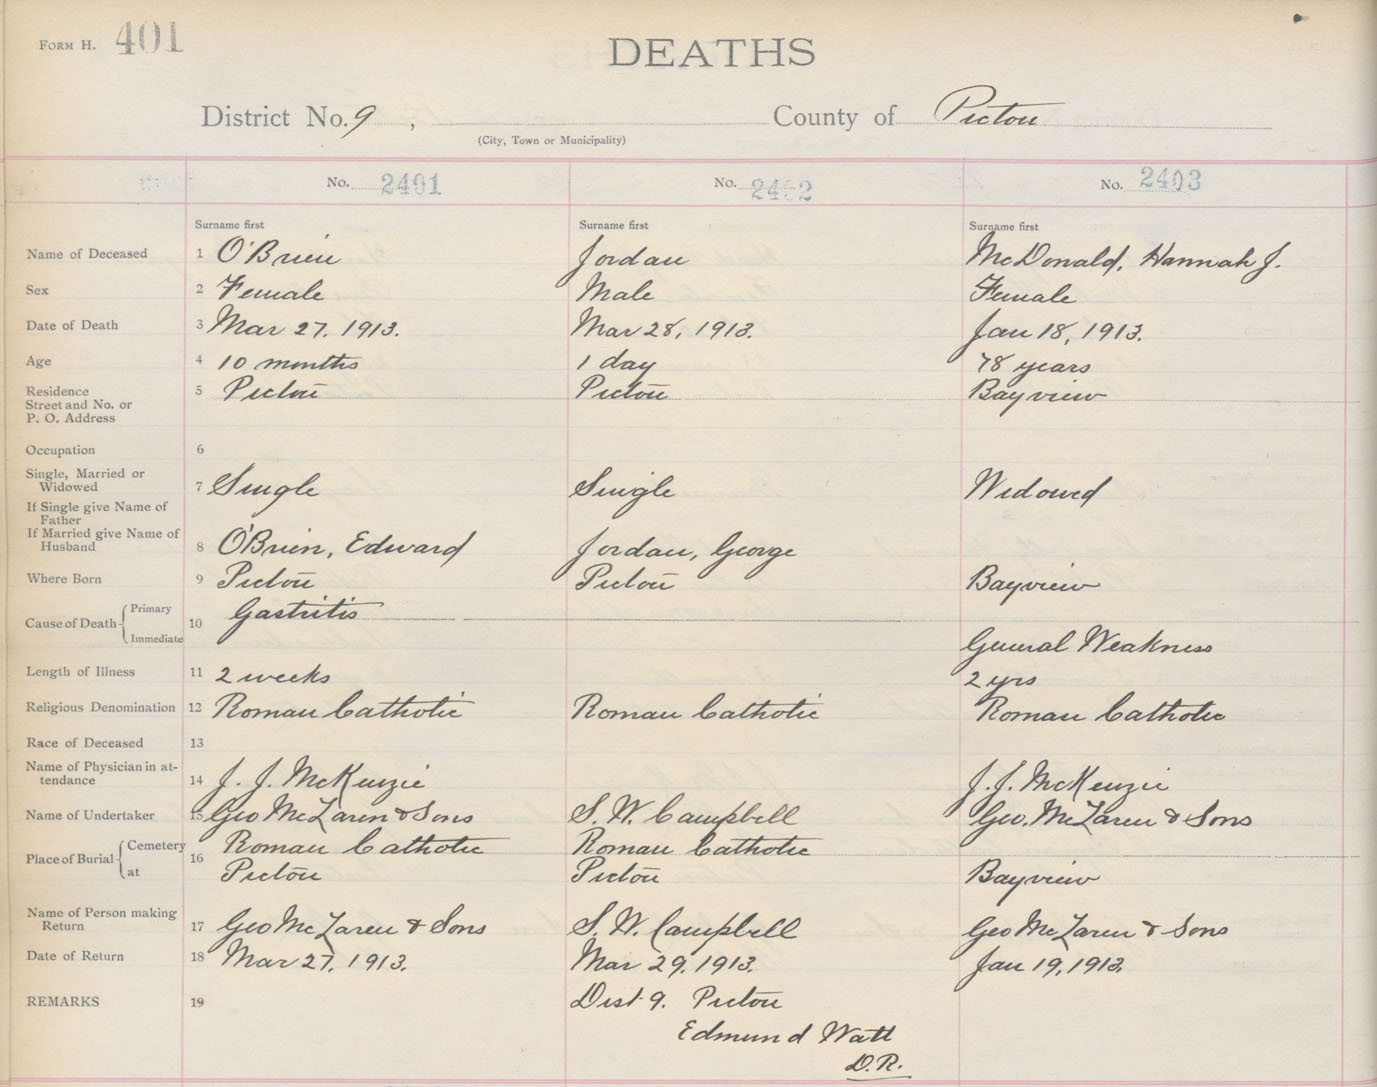 FORM H. 401
DEATHS
District No. 9, County of Pictou
(City, Town or Municipality)
No. 2401 No. 2402 No. 2403
Surname first Surname first Surname first
Name of Deceased 1 O'Brien Jordan McDonald, Hannah J.
Sex 2 Female Male Female
Date of Death 3 Mar 27. 1913. Mar 28, 1913. Jan 18, 1913.
Age 4 10 months 1 day 78 years
Residence 5 Pictou Pictou Bayview
Street and No. or
P. O. Address
Occupation 6
Single, Married or
Widowed 7 Single Single Widowed
If Single give Name of
Father
If Married give Name of
Husband 8 O'Brien, Edward Jordan, George
Where Born 9 Pictou Pictou Bayview
Cause of Death Primary 10 Gastritis
Immediate General Weakness
Length of Illness 11 2 weeks 2 yrs
Religious Denomination 12 Roman Catholic Roman Catholic Roman Catholic
Race of Deceased 13
Name of Physician in at-
tendance 14 J. J. McKenzie J. J. McKenzie
Name of Undertaker 15 Geo McLaren & Sons S. W. Campbell Geo. McLaren & Sons
Place of Burial Cemetery 16 Roman Catholic Roman Catholic
at Pictou Pictou Bayview
Name of Person making
Return 17 Geo McLaren & Sons S. W. Campbell Geo McLaren & Sons
Date of Return 18 Mar 27, 1913. Mar 29, 1913. Jan 19, 1913.
REMARKS 19 Dist 9. Pictou
Edmund Watt
D.R.